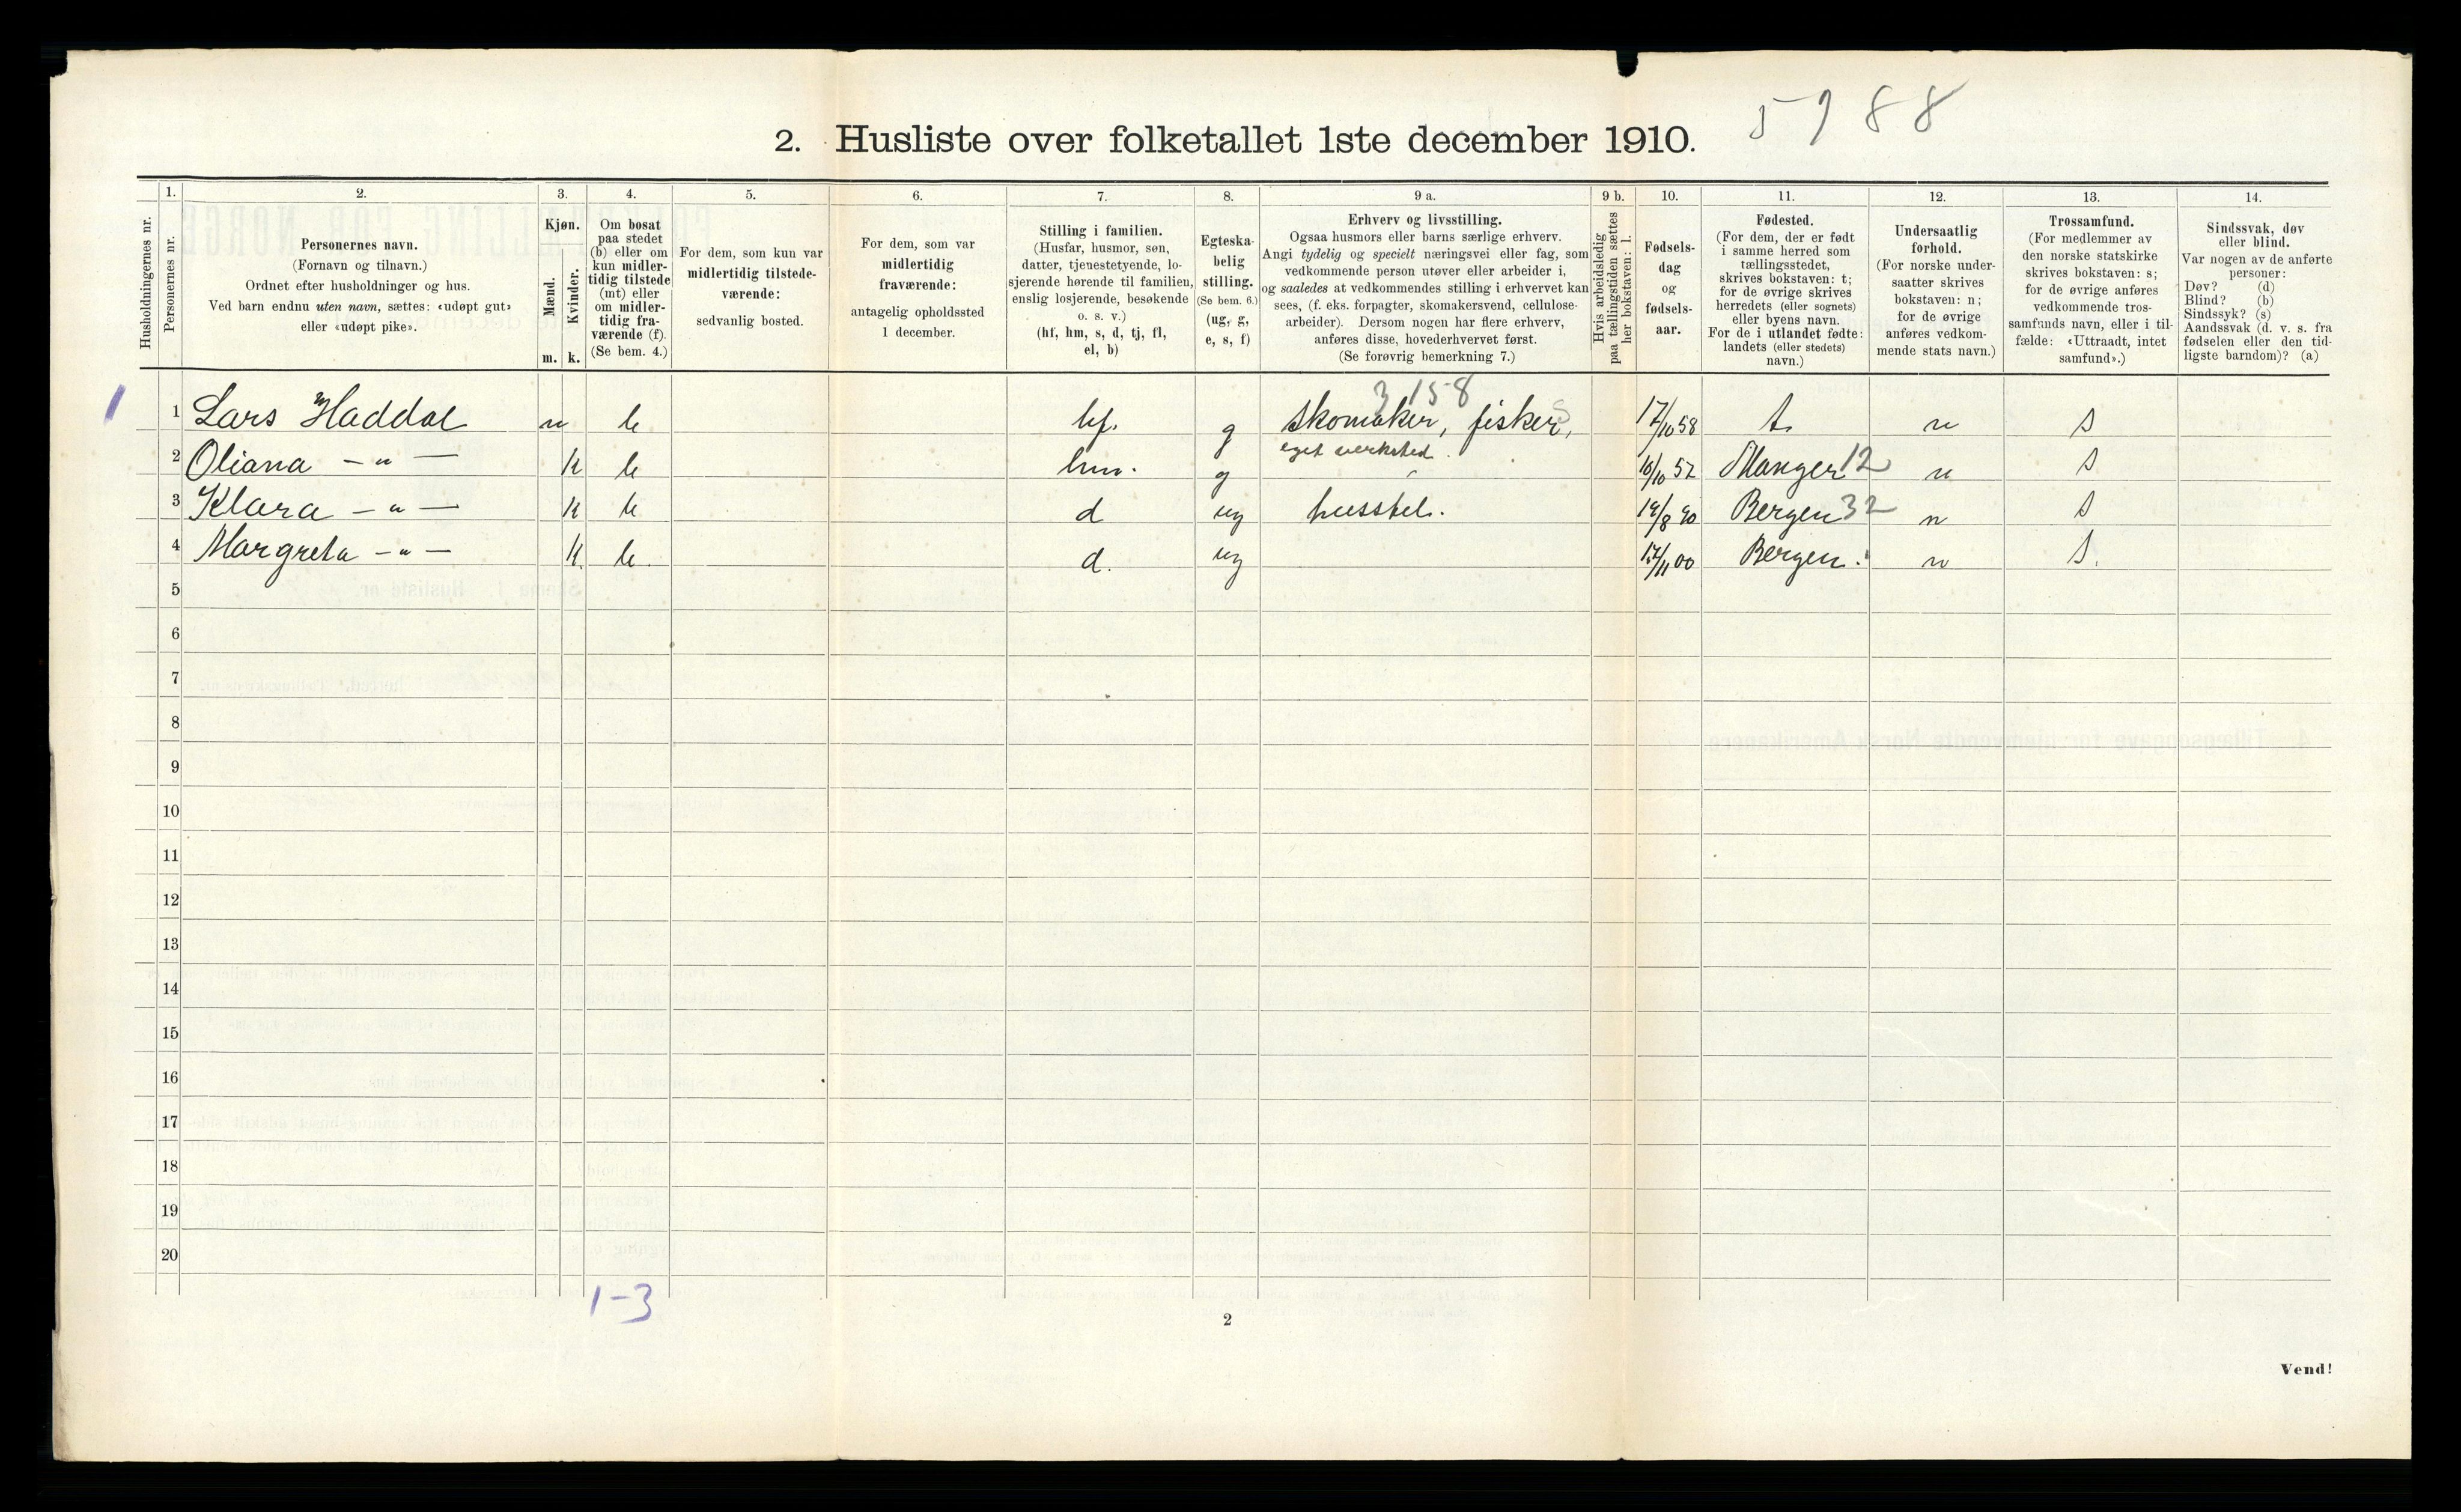 5988
2. Husliste over folketallet 1ste december 1910.
Husholdningernes nr.
1.
Personernes nr.
2.
Personernes navn.
(Fornavn og tilnavn.)
Ordnet efter husholdninger og hus.
Ved barn endnu uten navn, sættes: «udøpt gut»
eller «udøpt pike».
3.
Kjøn.
Mænd.
Kvinder.
m. k.
4.
Om bosat
paa stedet
(b) eller om
kun midler-
tidig tilstede
(mt) eller
om midler-
tidig fra-
værende (f).
(Se bem. 4.)
5.
For dem, som kun var
midlertidig tilstede-
værende:
sedvanlig bosted.
6.
For dem, som var
midlertidig
fraværende:
antagelig opholdssted
1 december.
7.
Stilling i familien.
(Husfar, husmor, søn,
datter, tjenestetyende, lo-
sjerende hørende til familien,
enslig losjerende, besøkende
o. s. v.)
(hf, hm, s, d, tj, fl,
el, b)
8.
Egteska-
belig
stilling.
(Se bem. 6.)
(ug, g,
e, s, f)
9 a.
Erhverv og livsstilling.
Ogsaa husmors eller barns særlige erhverv.
Angi tydelig og specielt næringsvei eller fag, som
vedkommende person utøver eller arbeider i,
og saaledes at vedkommendes stilling i erhvervet kan
sees, (f. eks. forpagter, skomakersvend, cellulose-
arbeider). Dersom nogen har flere erhverv,
anføres disse, hovederhvervet først.
(Se forøvrig bemerkning 7.)
9 b.
Hvis arbeidsledig
paa tællingstiden sættes
her bokstaven: l.
10.
Fødsels-
dag
og
fødsels-
aar.
11.
Fødested.
(For dem, der er født
i samme herred som
tællingsstedet,
skrives bokstaven: t;
for de øvrige skrives
herredets (eller sognets)
eller byens navn.
For de i utlandet fødte:
landets (eller stedets)
navn.)
12.
Undersaatlig
forhold.
(For norske under-
saatter skrives
bokstaven: n;
for de øvrige
anføres vedkom-
mende stats navn.)
13.
Trossamfund.
(For medlemmer av
den norske statskirke
skrives bokstaven: s;
for de øvrige anføres
vedkommende tros-
samfunds navn, eller i til-
fælde: «Uttraadt, intet
samfund».)
14.
Sindssvak, døv
eller blind.
Var nogen av de anførte
personer:
Døv? (d)
Blind? (b)
Sindssyk? (s)
Aandssvak (d. v. s. fra
fødselen eller den tid-
ligste barndom)? (a)
3 158
1 1 Lars Haddal m b hf. g skomaker, fisker, 17/10 58 t. n s
eget verksted.
2 Oliana — " — k b hm. g 16/10 52 Manger 12 n s
3 Klara — " — k b d ug husstel. 14/8 90 Bergen 32 n s
4 Margreta — " — k. b. d. ug 17/11 00 Bergen. n s.
5
6
7
8
9
10
11
12
13
14
15
16
17
18
19
20
1-3
2
Vend!